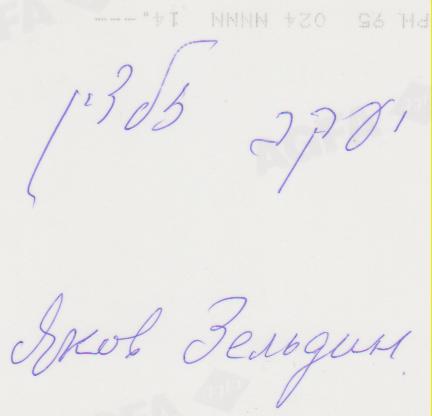 PH 95 024 NNNN 14.----
יעקב זלדין
Яков Зельдин